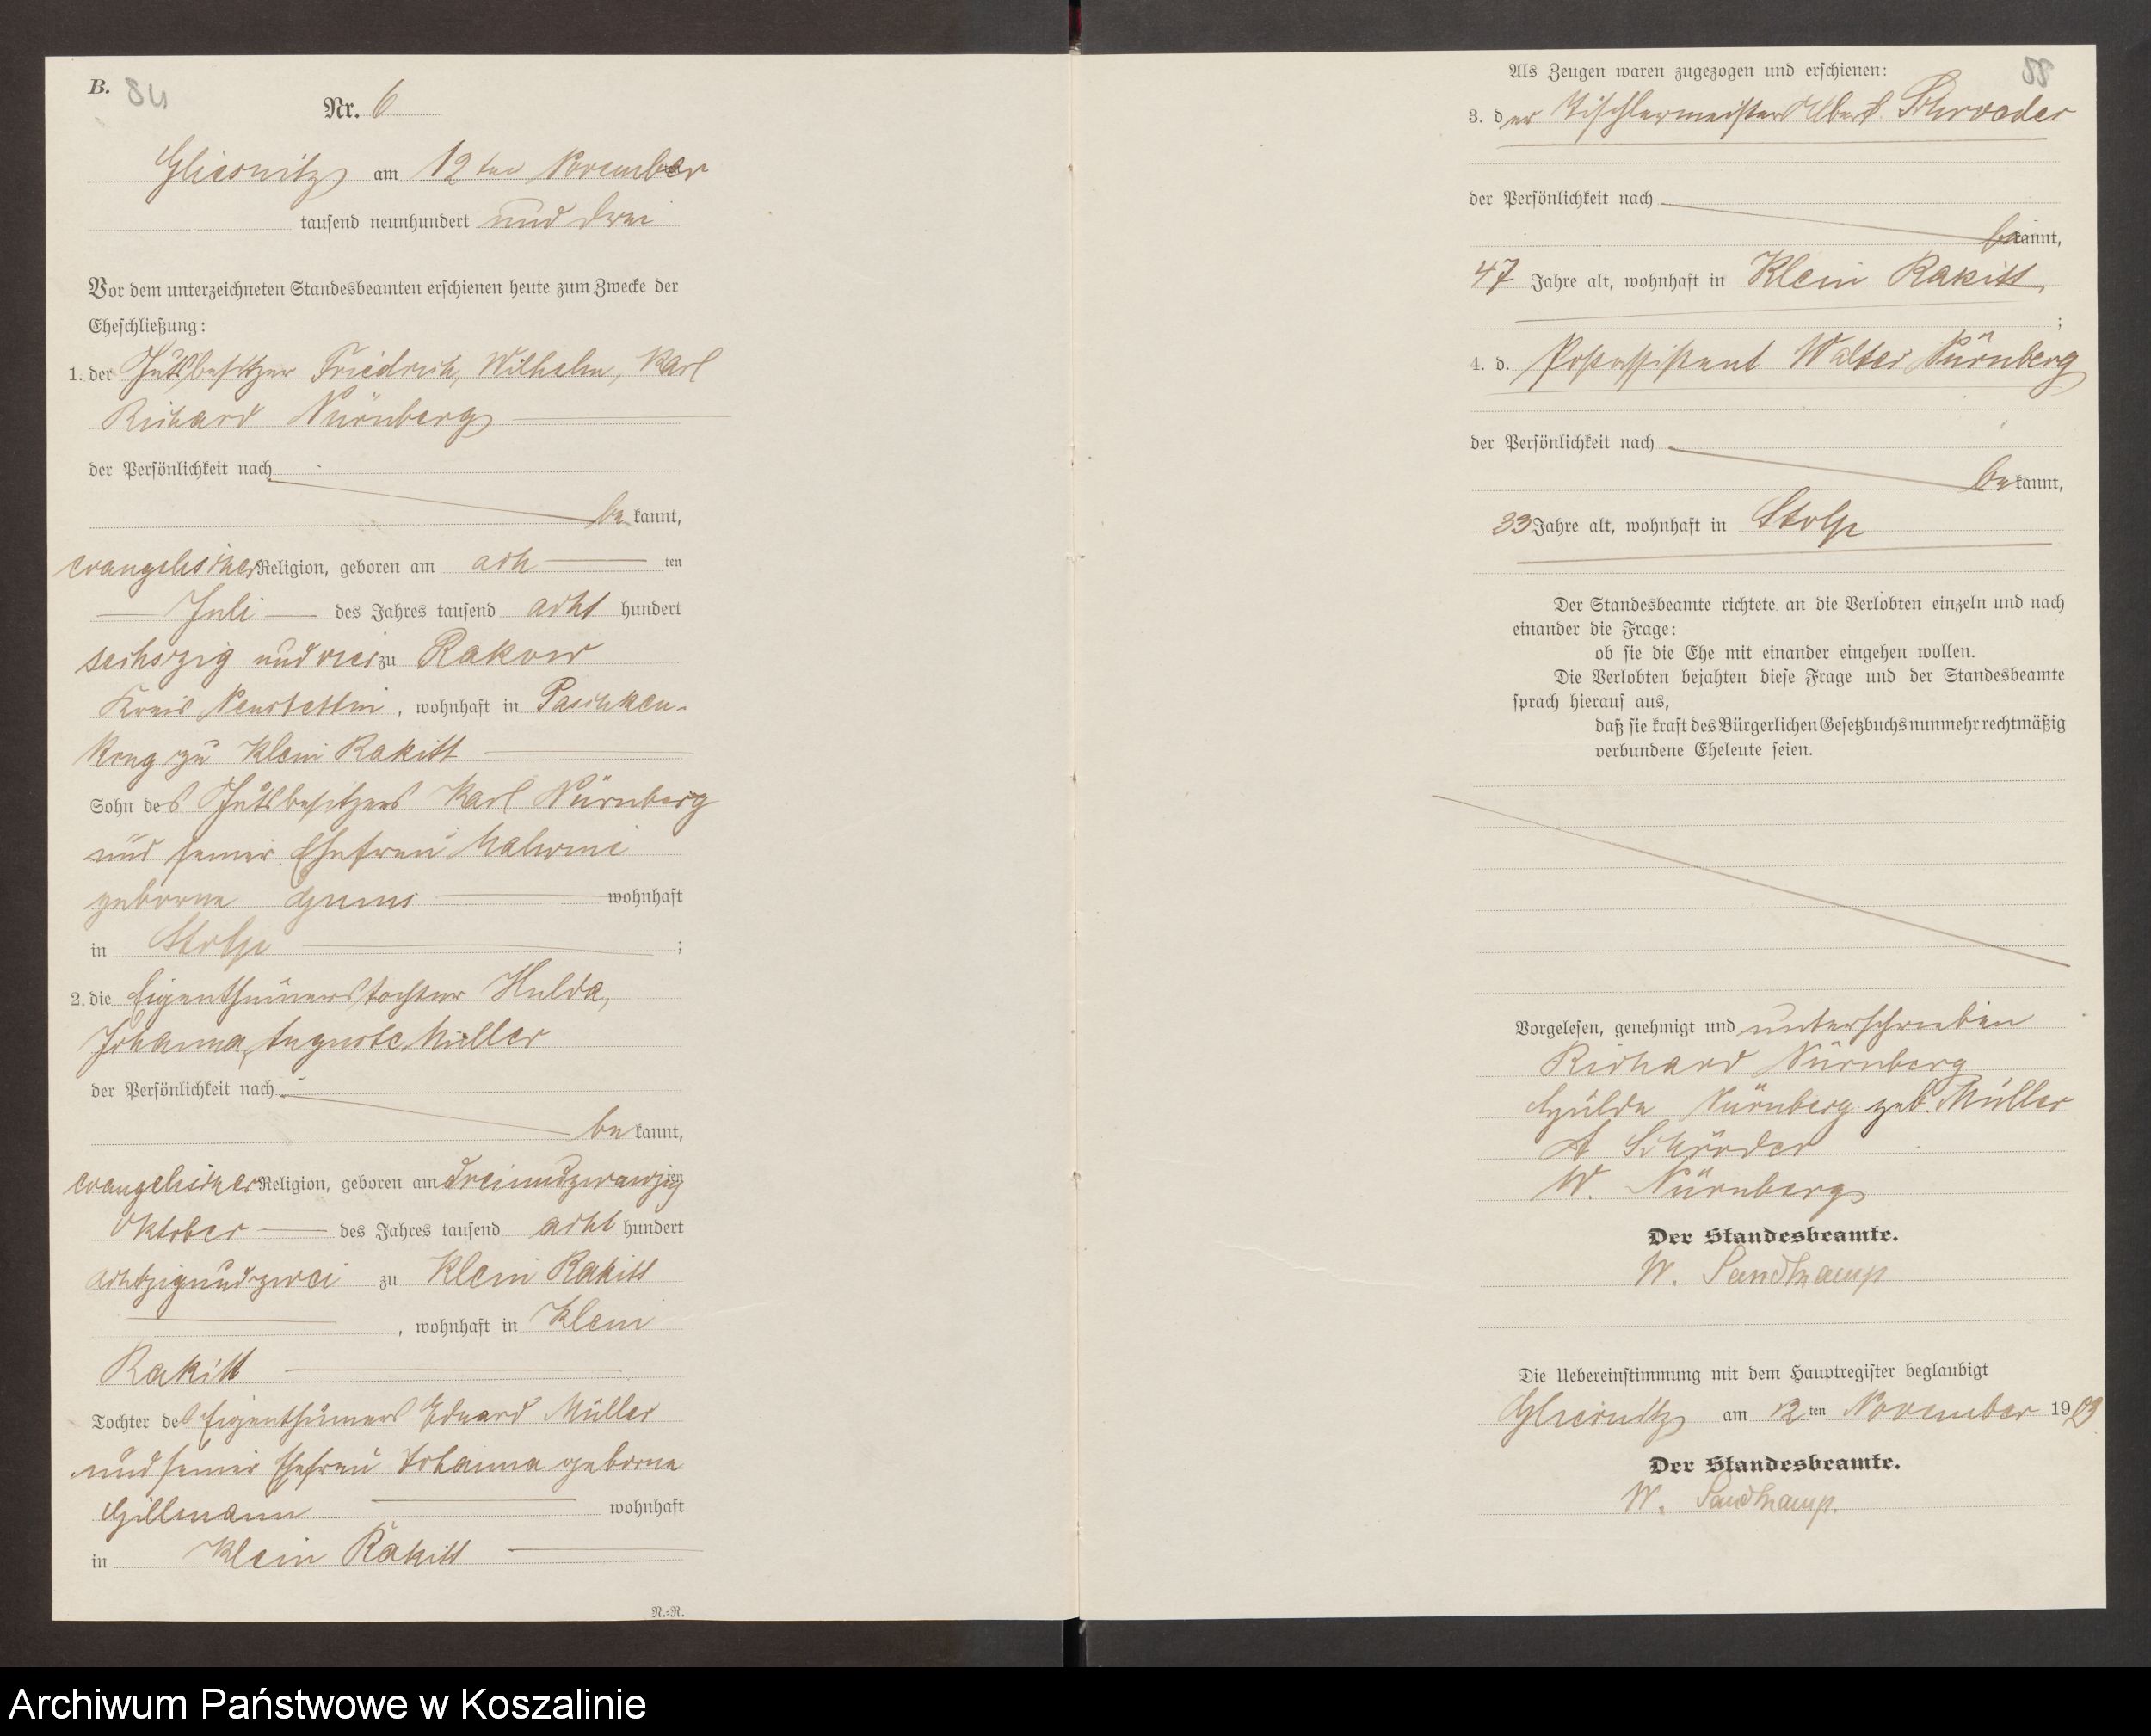 B. 84
Nr. 6
Gliesnitz am 12ten November
tausend neunhundert und drei
Vor dem unterzeichneten Standesbeamten erschienen heute zum Zwecke der
Eheschließung:
1. der Gutsbesitzer Friedrich, Wilhelm, Karl
Richard Nürnberg
der Persönlichkeit nach
be kannt,
evangelischer Religion, geboren am acht ten
Juli des Jahres tausend acht hundert
sechszig und vier zu Rakow
Kreis Neustettin, wohnhaft in Paschken-
krug zu Klein Rakitt
Sohn des Gutsbesitzers Karl Nürnberg
und seiner Ehefrau Malwine
geborne wohnhaft
in Stolp ;
2. die Eigenthümerstochter Hulda,
Johanna, Auguste Müller
der Persönlichkeit nach
be kannt,
evangelischer Religion, geboren am dreiundzwanzig ten
Oktober des Jahres tausend acht hundert
achtzig und zwei zu Klein Rakitt
, wohnhaft in Klein
Rakitt
Tochter des Eigenthümers Eduard Müller
und seiner Ehefrau Johanna geborne
Hillmann wohnhaft
in Klein Rakitt
N.=N.
Als Zeugen waren zugezogen und erschienen: 88
3. der Tischlermeister Albert Schroeder
der Persönlichkeit nach
bekannt,
47 Jahre alt, wohnhaft in Klein Rakitt,
;
4. d. Postassistent Walter Nürnberg
der Persönlichkeit nach
be kannt,
33 Jahre alt, wohnhaft in Stolp
Der Standesbeamte richtete an die Verlobten einzeln und nach
einander die Frage:
ob sie die Ehe mit einander eingehen wollen.
Die Verlobten bejahten diese Frage und der Standesbeamte
sprach hierauf aus,
daß sie kraft des Bürgerlichen Gesetzbuchs nunmehr rechtmäßig
verbundene Eheleute seien.
Vorgelesen, genehmigt und unterschrieben
Richard Nürnberg
Hulda Nürnberg geb. Müller
A Schröder
W. Nürnberg
Der Standesbeamte.
W. Sandkamp
Die Uebereinstimmung mit dem Hauptregister beglaubigt
Gliesnitz am 12 ten November 1903
Der Standesbeamte.
W. Sandkamp.
Archiwum Państwowe w Koszalinie